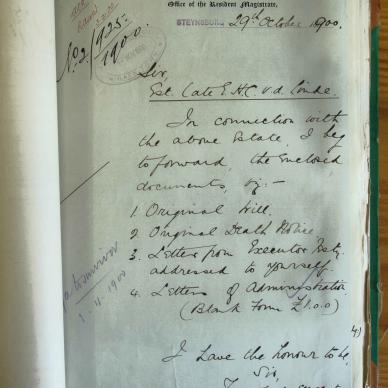 Office of the Resident Magistrate,
STEYNSBURG 29th October 1900.
No. 2/925
1900.
Sir,
Est. Late E.H.C. v.d. Linde.
In connection with
the above Estate, I beg
to forward, the enclosed
documents, viz:-
1. Original Will.
2. Original Death Notice
3. Letter from Executor Testy.
addressed to yourself.
4. Letters of Administration
(Blank Form £1.0.0)
4)
I have the honour to be,
Sir,
1.4.1900